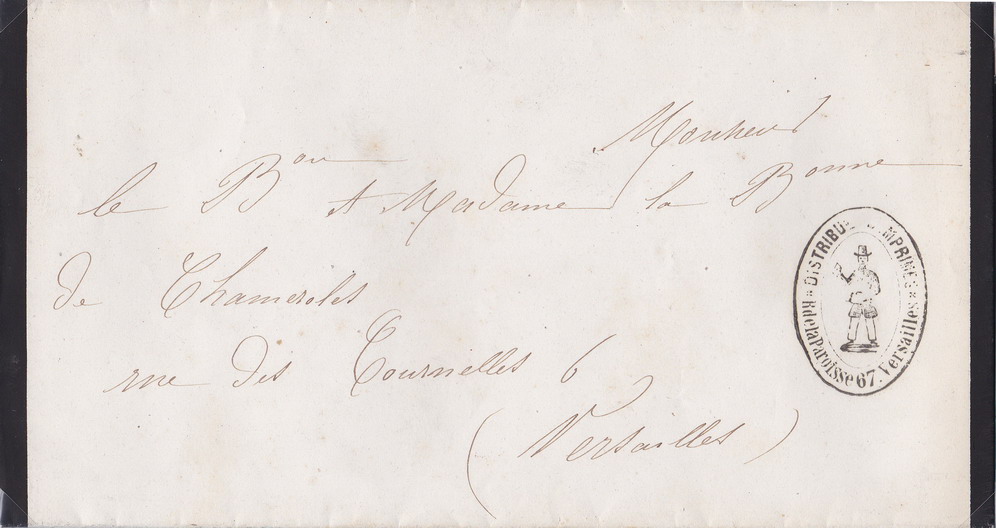 Monsieur
le Bon et Madame la Bonne
de Chameroles
rue des Tournelles 6
(Versailles)
DISTRIBUT D'IMPRIMÉS
R. de la Paroisse 67. Versailles